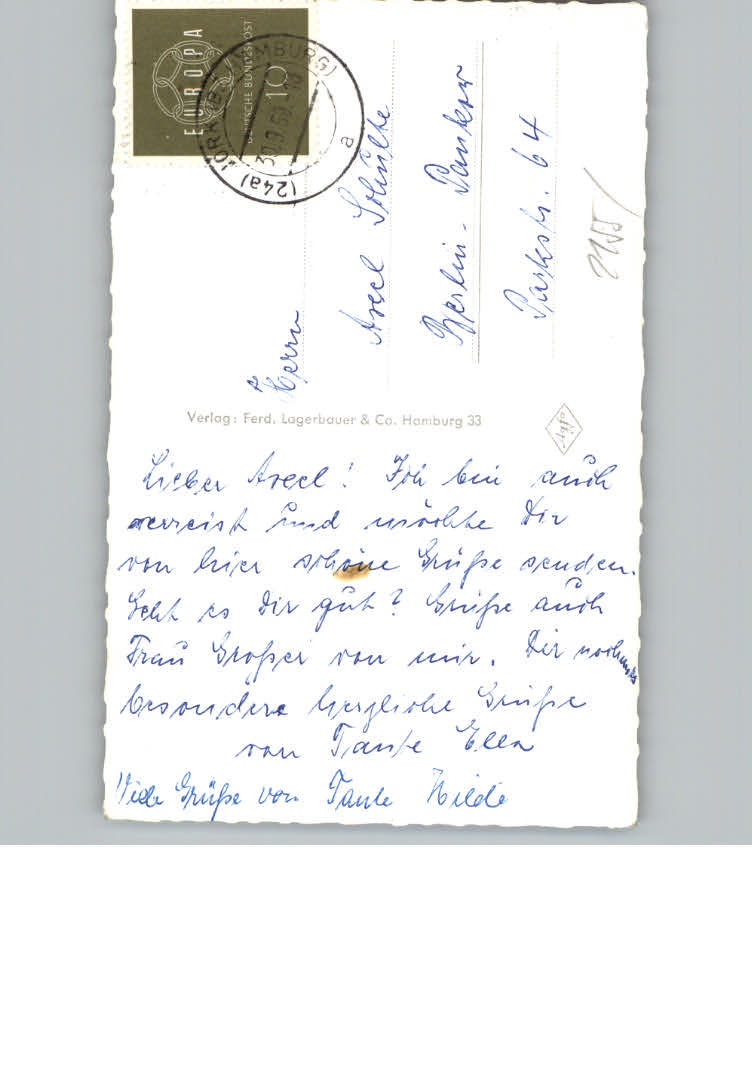 EUROPA
DEUTSCHE BUNDESPOST
10
(24a) JORK (BZ. HAMBURG)
a
Herrn
Axel Schulke
Berlin - Pankow
Parkstr. 64
2155/
Verlag: Ferd. Lagerbauer & Co. Hamburg 33
Agfa
Lieber Axel! Ich bin auch
verreist und möchte Dir
von hier schöne Grüße senden.
Geht es Dir gut? Grüße auch
Frau Großer von mir. Dir nochmals
besondere herzliche Grüße
von Tante Ella
Viele Grüße von Tante Hilde